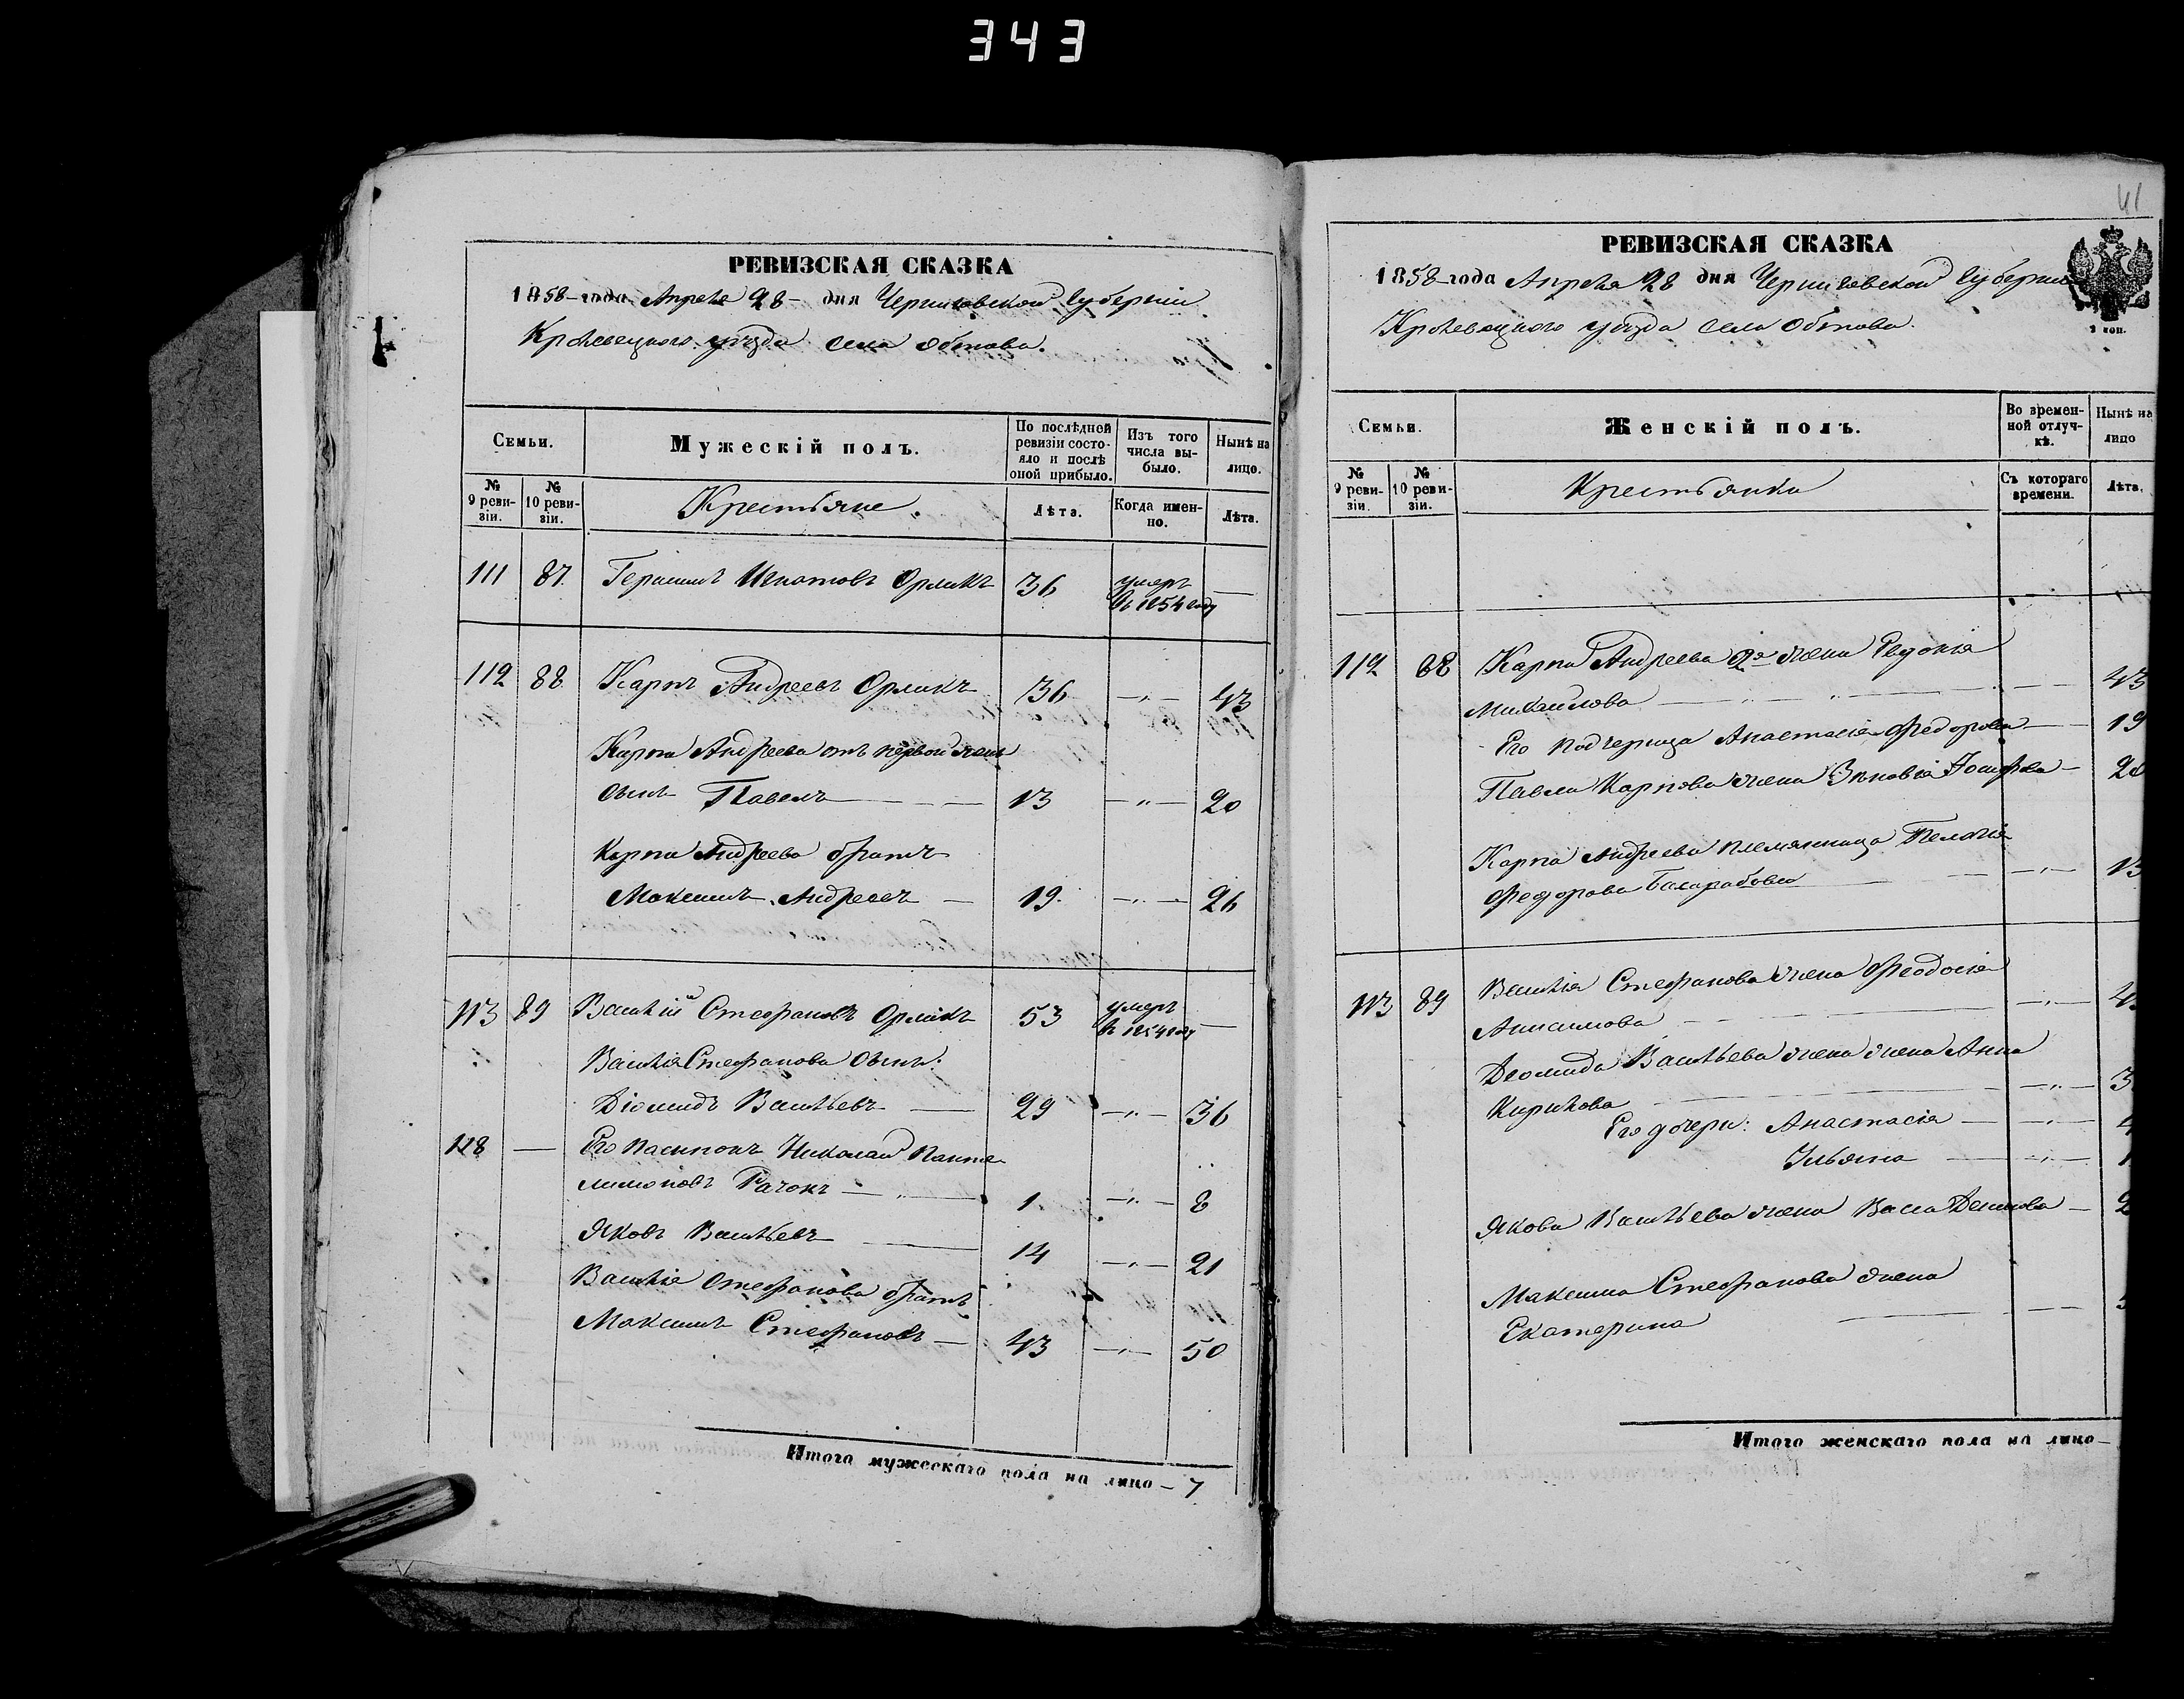 343
РЕВИЗСКАЯ СКАЗКА
1858 года Апреля 28 дня Черниговской Губернии
Кролевецкого уезда села Обтова.
Семьи.
Мужескій полъ.
По послѣдней ревизіи состояло и послѣ оной прибыло.
Изъ того числа выбыло.
Нынѣ на лицо.
№ 9 ревизіи.
№ 10 ревизіи.
Крестьяне.
Лѣта.
Когда именно.
Лѣта.
111 87 Герасимъ Игнатовъ Орликъ 36 умеръ въ 1854 году —
112 88 Карпъ Андреевъ Орликъ 36 —„— 43
Карпа Андреева отъ первой жены
сынъ Павелъ — 13 —„— 20
Карпа Андреева братъ
Максимъ Андреевъ — 19 —„— 26
113 89 Василій Стефановъ Орликъ 53 умеръ въ 1854 году —
Василія Стефанова сынъ:
Діомидъ Васильевъ — 29 —„— 36
118 — Его пасынокъ Николай Панте
лимоновъ Рачокъ — 1 —„— 8
Яковъ Васильевъ — 14 —„— 21
Василія Стефанова братъ
Максимъ Стефановъ — 43 —„— 50
Итого мужескаго пола на лицо — 7
41
РЕВИЗСКАЯ СКАЗКА
1858 года Апреля 28 дня Черниговской Губернии
Кролевецкого уезда села Обтова.
Семьи.
Женскій полъ.
Во временной отлучкѣ.
Нынѣ на лицо
№ 9 ревизіи.
№ 10 ревизіи.
Крестьянки
Съ котораго времени.
Лѣта.
112 88 Карпа Андреева 2я жена Евдокія
Михайлова — 43
Его подчерица Анастасія Федорова — 19
Павла Карпова жена Зиновія Іосифова — 20
Карпа Андреева племянница Пелагія
Федорова — 13
113 89 Василія Стефанова жена Феодосія
Анисимова —„—
Деомида Васильева жена жена Анна
Кирилова —„—
Его дочери: Анастасія —„—
Ульяна —„—
Якова Васильева жена Васса Денисова —
Максима Стефанова жена
Екатерина —
Итого женскаго пола на лицо —